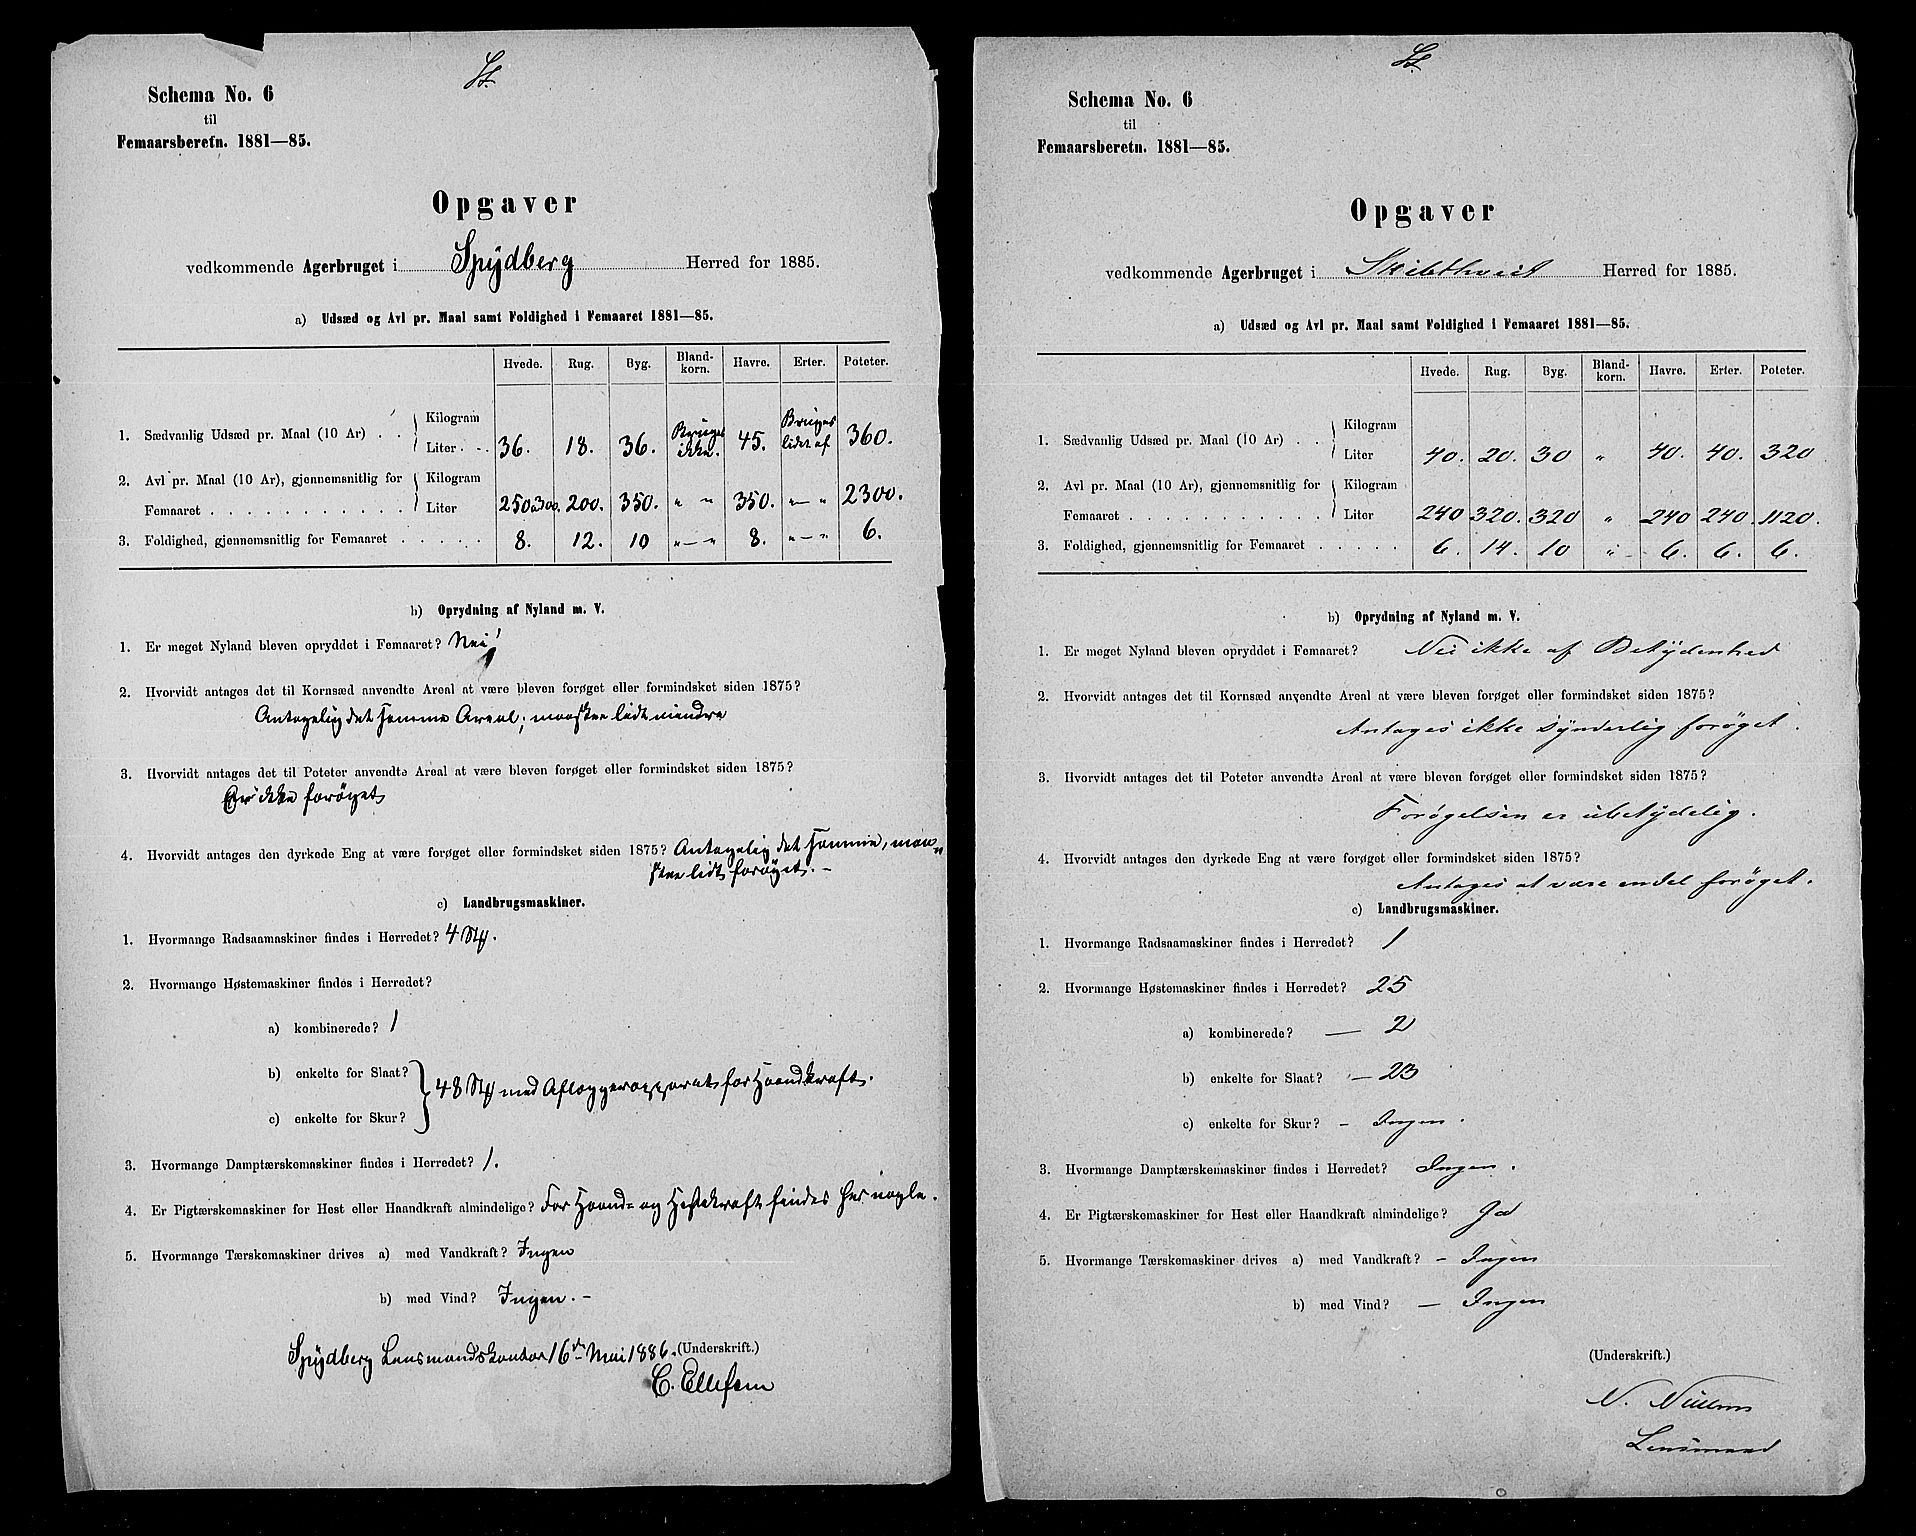 Schema No. 6
til
Femaarsberetn. 1881—85.
Opgaver
vedkommende Agerbruget i Spydberg Herred for 1885.
a) Udsæd og Avl pr. Maal samt Foldighed i Femaaret 1881—85.
Hvede. Rug. Byg. Bland-korn. Havre. Erter. Poteter.
1. Sædvanlig Udsæd pr. Maal (10 Ar) . . Kilogram
Liter . . . 36. 18. 36. Bruges ikke. 45. Bruges lidet af 360.
2. Avl pr. Maal (10 Ar), gjennemsnitlig for Kilogram
Femaaret . . . . . . . . . . . Liter 250 a 300. 200. 350. " " 350. "—" 2300.
3. Foldighed, gjennemsnitlig for Femaaret . . . . . 8. 12. 10 "—" 8. "—" 6.
b) Oprydning af Nyland m. V.
1. Er meget Nyland bleven opryddet i Femaaret? Nei!
2. Hvorvidt antages det til Kornsæd anvendte Areal at være bleven forøget eller formindsket siden 1875?
Antagelig det samme Areal; maaskee lidt mindre
3. Hvorvidt antages det til Poteter anvendte Areal at være bleven forøget eller formindsket siden 1875?
Er ikke forøget
4. Hvorvidt antages den dyrkede Eng at være forøget eller formindsket siden 1875? Antagelig det samme, maa-
skee lidt forøget. —
c) Landbrugsmaskiner.
1. Hvormange Radsaamaskiner findes i Herredet? 4 Stk.
2. Hvormange Høstemaskiner findes i Herredet?
a) kombinerede? 1
b) enkelte for Slaat?
48 Stk med Aflæggerapparat for Haandkraft.
c) enkelte for Skur?
3. Hvormange Damptærskemaskiner findes i Herredet? 1.
4. Er Pigtærskemaskiner for Hest eller Haandkraft almindelige? For Haand- og Hestekraft findes her nogle.
5. Hvormange Tærskemaskiner drives a) med Vandkraft? Ingen
b) med Vind? Ingen. —
Spydberg Lensmandskontor 16de Mai 1886. (Underskrift.)
C. Ellefsen
Schema No. 6
til
Femaarsberetn. 1881—85.
Opgaver
vedkommende Agerbruget i Skibthveit Herred for 1885.
a) Udsæd og Avl pr. Maal samt Foldighed i Femaaret 1881—85.
Hvede. Rug. Byg. Bland-korn. Havre. Erter. Poteter.
1. Sædvanlig Udsæd pr. Maal (10 Ar) . . Kilogram
Liter 40. 20. 30 " 40. 40. 320
2. Avl pr. Maal (10 Ar), gjennemsnitlig for Kilogram
Femaaret . . . . . . . . . . . Liter 240 320. 320 " 240 240. 1120.
3. Foldighed, gjennemsnitlig for Femaaret . . . . . 6. 14. 10 " 6. 6. 6.
b) Oprydning af Nyland m. V.
1. Er meget Nyland bleven opryddet i Femaaret? Nei ikke af Betydenhed
2. Hvorvidt antages det til Kornsæd anvendte Areal at være bleven forøget eller formindsket siden 1875?
Antages ikke synderlig forøget.
3. Hvorvidt antages det til Poteter anvendte Areal at være bleven forøget eller formindsket siden 1875?
Forøgelsen er ubetydelig.
4. Hvorvidt antages den dyrkede Eng at være forøget eller formindsket siden 1875?
Antages at være endel forøget.
c) Landbrugsmaskiner.
1. Hvormange Radsaamaskiner findes i Herredet? 1
2. Hvormange Høstemaskiner findes i Herredet? 25
a) kombinerede? — 2
b) enkelte for Slaat? — 23
c) enkelte for Skur? — Ingen.
3. Hvormange Damptærskemaskiner findes i Herredet? Ingen.
4. Er Pigtærskemaskiner for Hest eller Haandkraft almindelige? Ja
5. Hvormange Tærskemaskiner drives a) med Vandkraft? — Ingen
b) med Vind? — Ingen
(Underskrift.)
N.
Lensmand